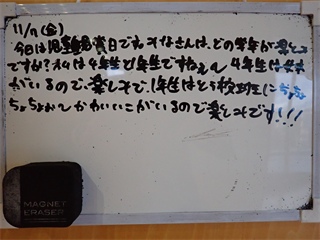 11/11(金)
今日は児童鑑賞日です。みなさんは、どの学年が楽しみ
ですか?私は4年生と1年生ですねぇ〜 4年生は
がいるので、楽しみで、1年生はとう校班に
ちょちょおー かわいい子がいるので楽しみです!!!
MAGNET
ERASER